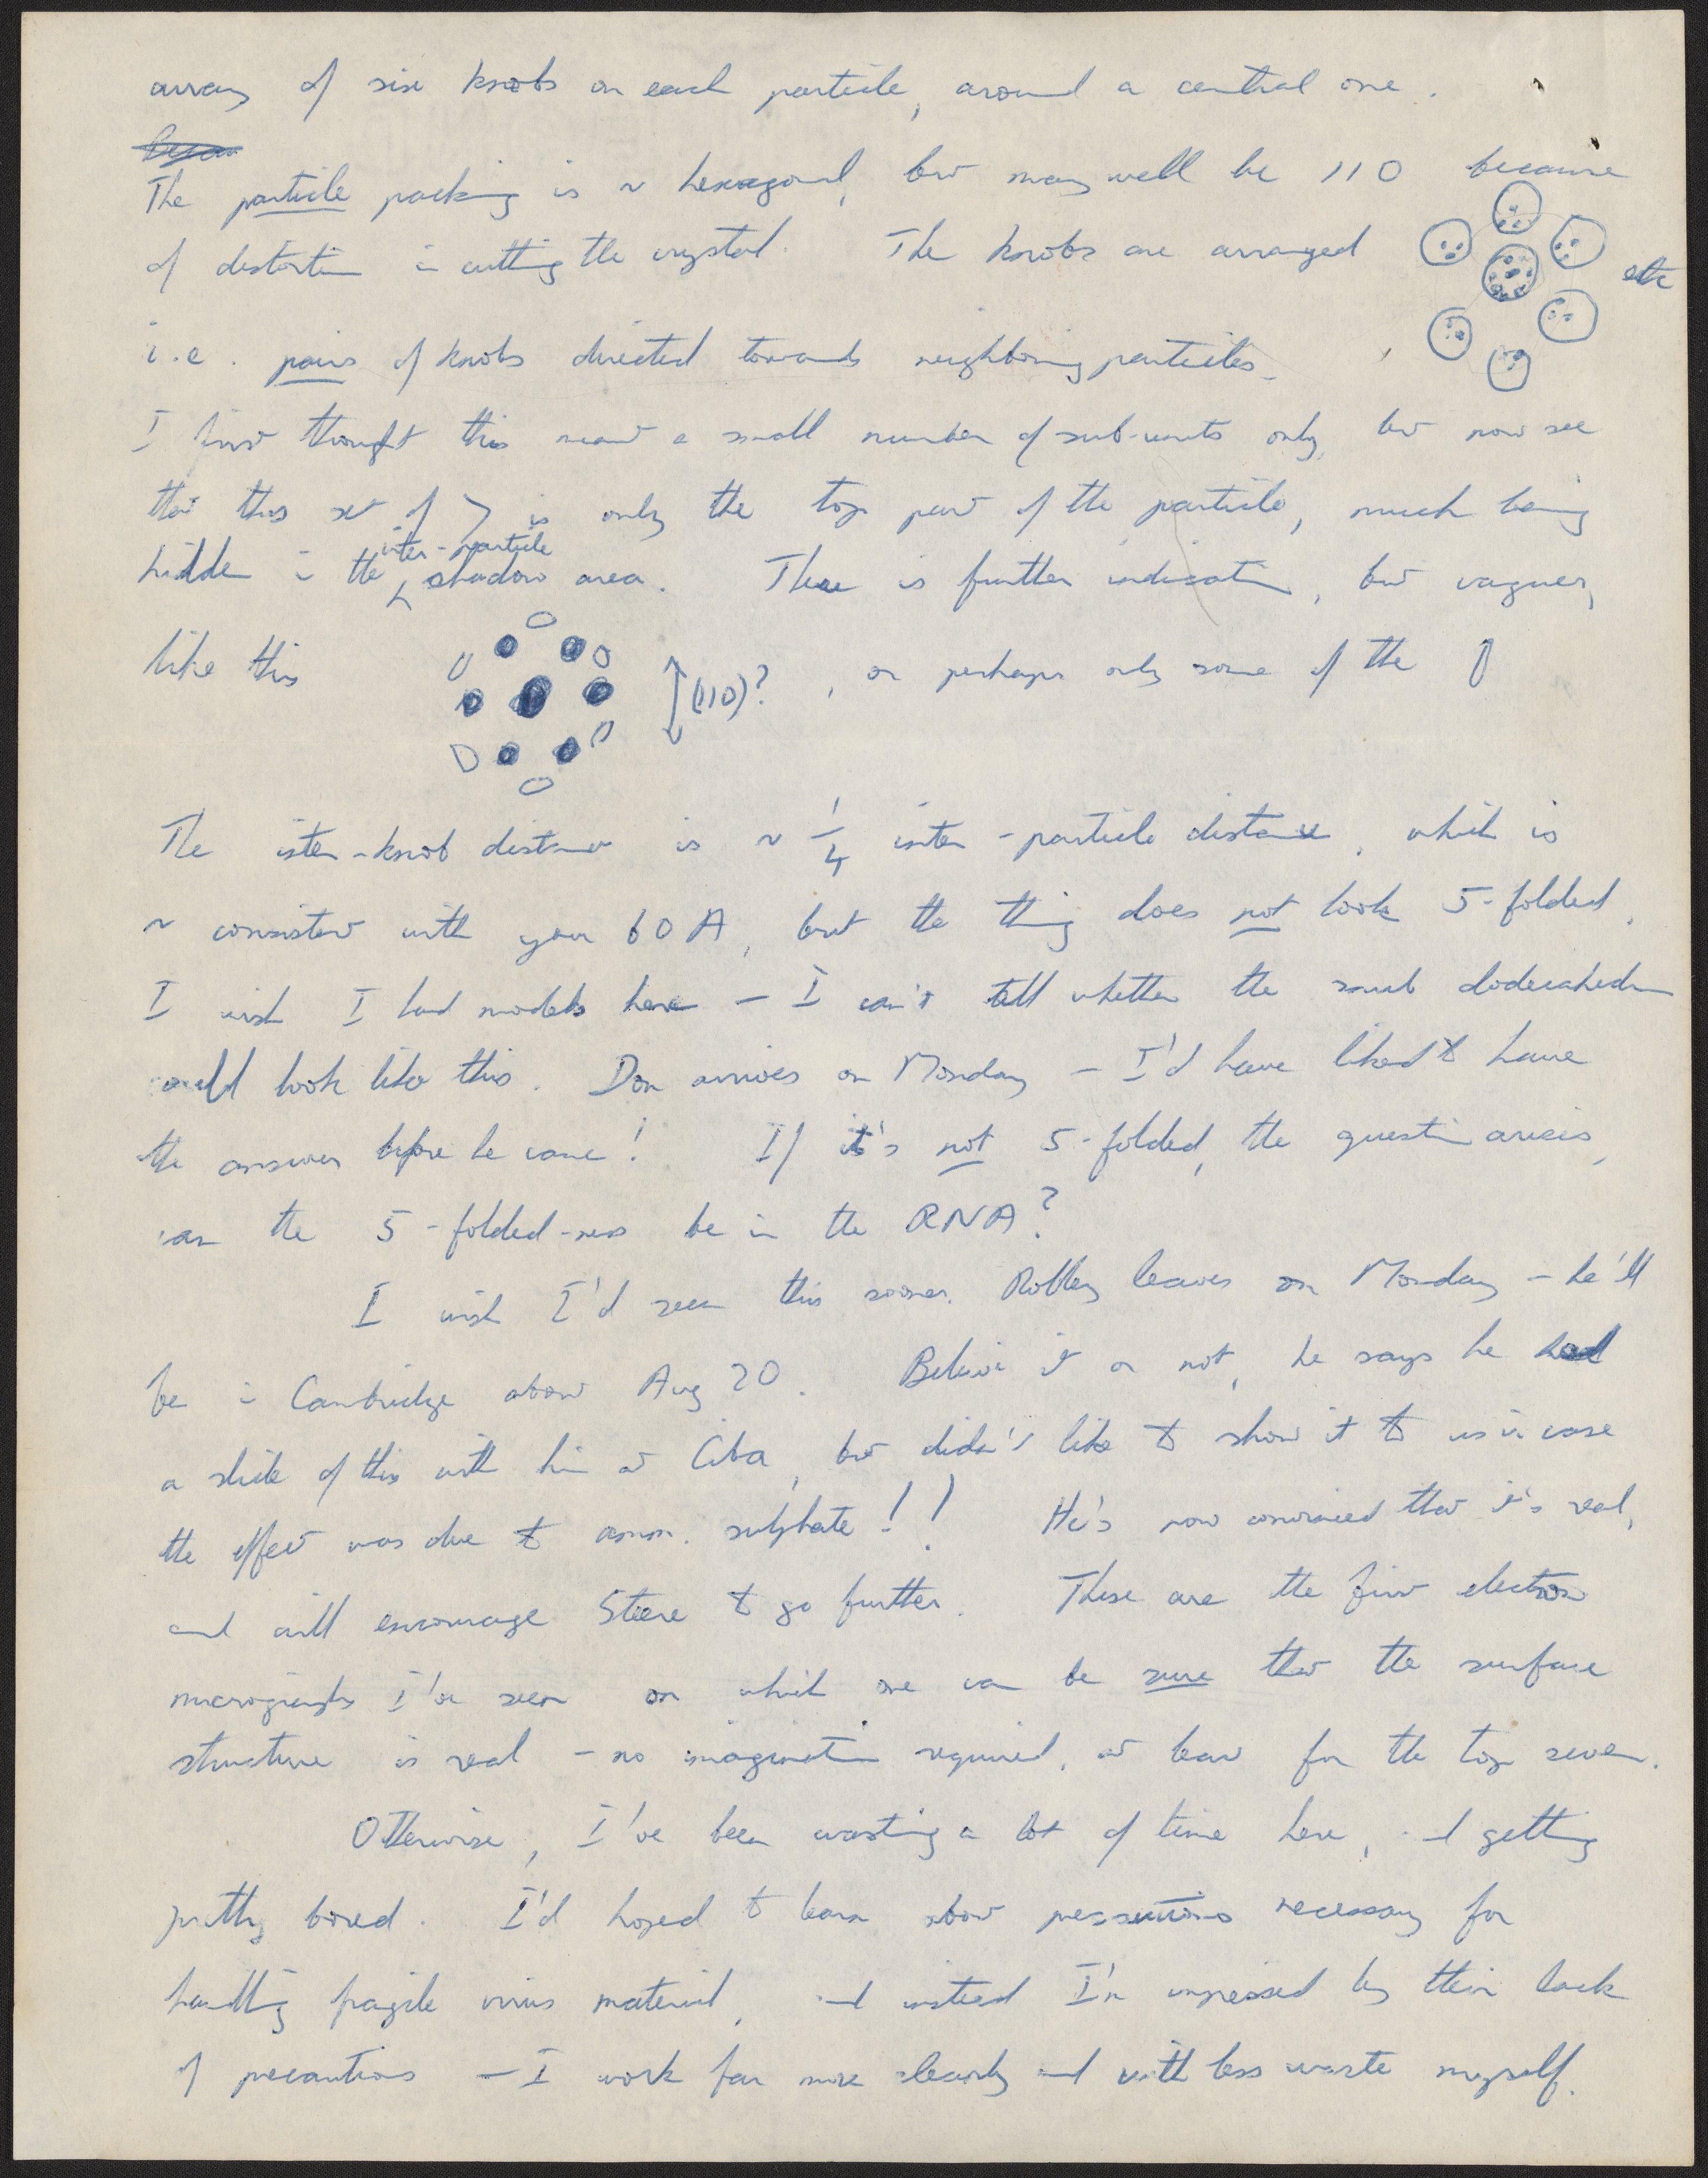 array of six knobs on each particle, around a central one.
The particle packing is ~ hexagonal, but may well be 110 because
of distortion in cutting the crystal. The knobs are arranged etc
i.e. pairs of knobs directed towards neighboring particles.
I first thought this meant a small number of sub-units only, but now see
that this set of 7 is only the top part of the particle, much being
hidden in the inter-particle shadow area. There is further indication, but vaguer,
like this (110)? , or perhaps only some of the 0
The inter-knob distance is ~ 1/4 inter-particle distance, which is
~ consistent with your 60 A, but the thing does not look 5-folded.
I wish I had models here – I can't tell whether the snub dodecahedron
could look like this. Don arrives on Monday – I'd have liked to have
the answer before he came! If it's not 5-folded, the question arises,
can the 5-folded-ness be in the RNA?
I wish I'd seen this sooner. Robley leaves on Monday – he'll
be in Cambridge about Aug 20. Believe it or not, he says he had
a slide of this with him at Ciba, but didn't like to show it to us in case
the effect was due to amm. sulphate!! He's now convinced that it's real,
and will encourage Steere to go further. These are the first electron
micrographs I've seen on which one can be sure that the surface
structure is real – no imagination required, at least for the top seven.
Otherwise, I've been wasting a lot of time here, and getting
pretty bored. I'd hoped to learn about necessary for
handling fragile virus material, and instead I'm impressed by their lack
of precautions – I work far more cleanly and with less waste myself.